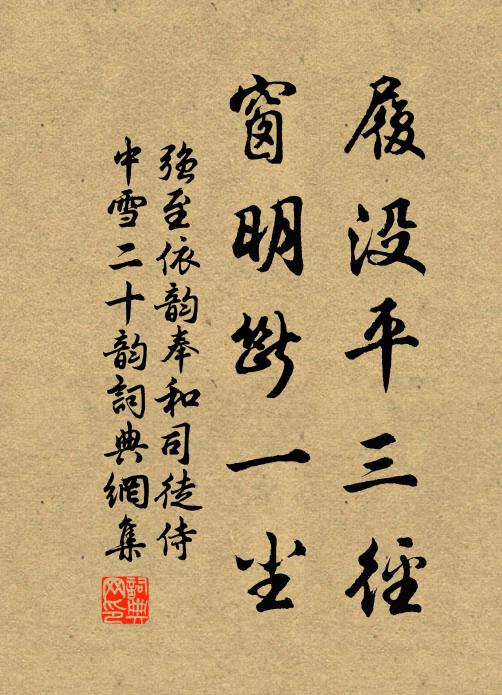 履没平三徑
窗明断一尘
强至依韵奉和司徒侍
中雪二十韵詞典網集
詞典网印